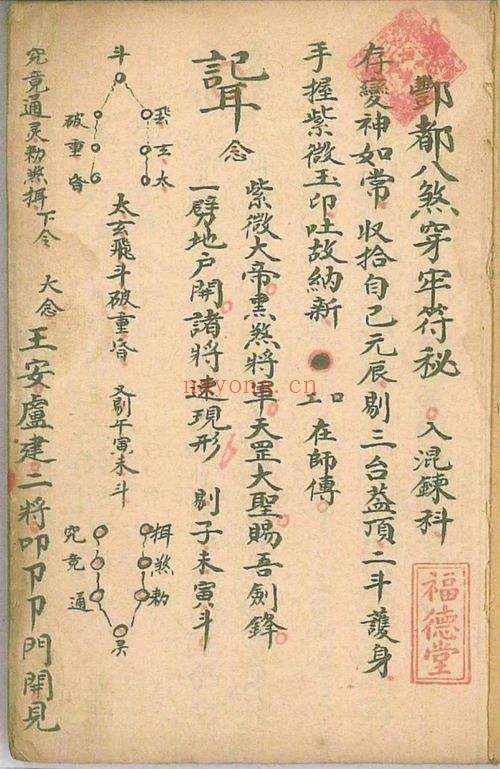 酆都八煞穿牢符秘 入混鍊科
存變神如常收拾自己元辰剔三台蓋頂二斗護身
手握紫微玉印吐故納新 口工 在師傳
福德堂
紫微大帝黑煞將軍天罡大聖賜吾劍鋒
一劈地户開諸將速現形 剔子未寅斗
念
斗
飛玄太
破重昏
太玄飛斗破重昏 又剔午寅未斗
煞勅
灵
究竟通
究竟通灵勅煞 下令
大念 王安盧建二將叩卩卩門開見
nayong.cn